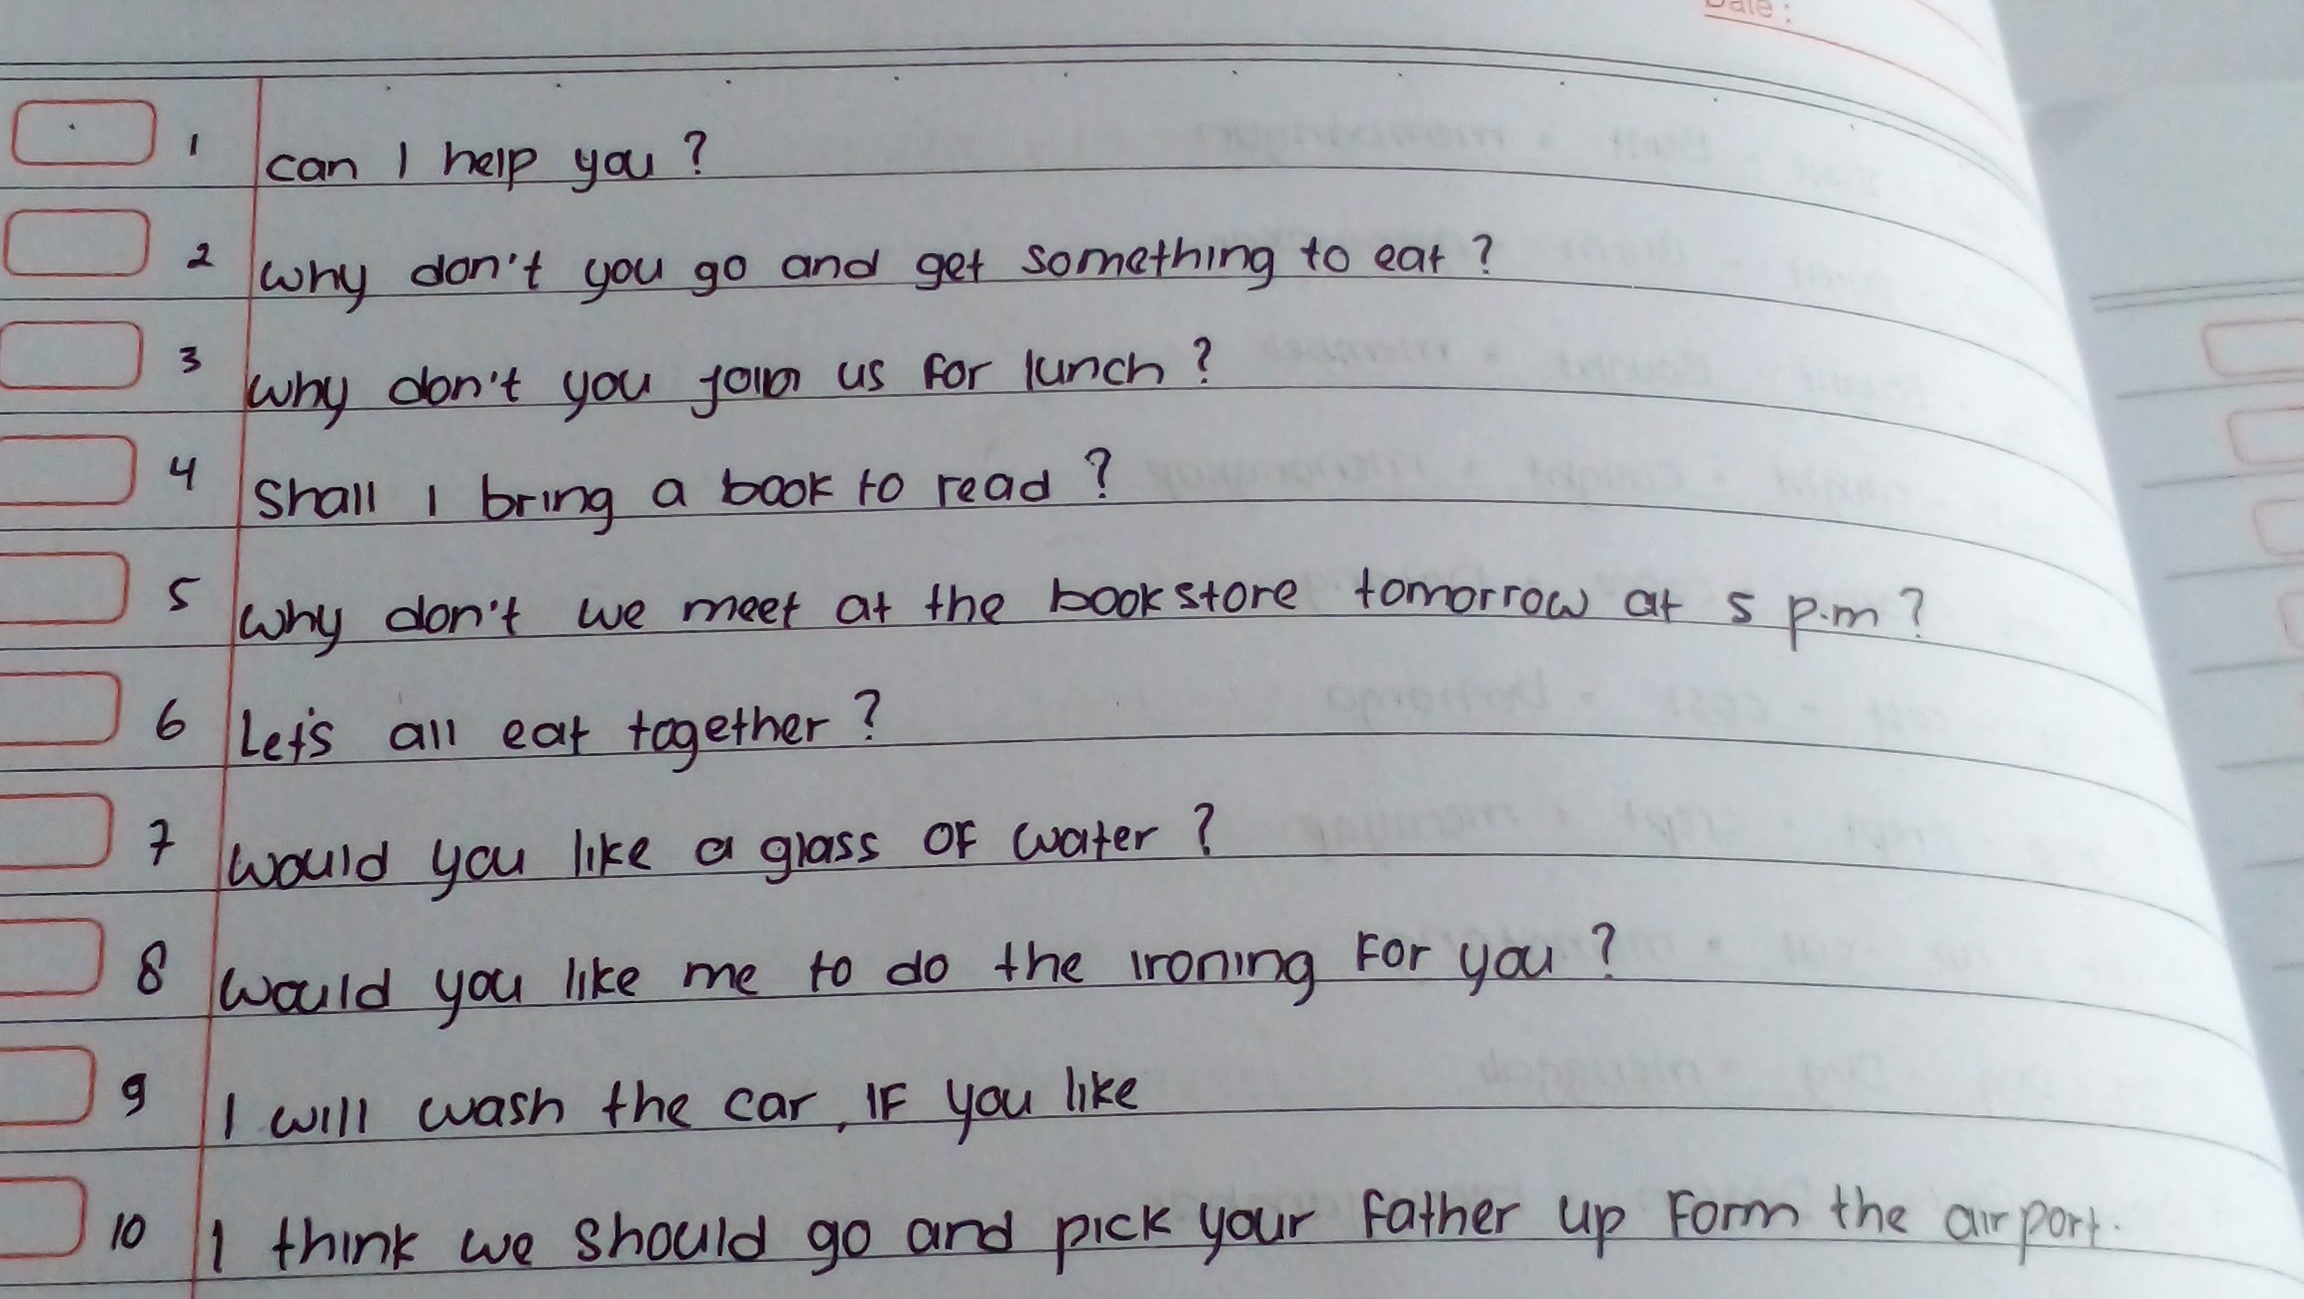 Date:
1 can I help you?
2 why don't you go and get something to eat?
3 why don't you join us for lunch?
4 Shall I bring a book to read?
5 why don't we meet at the bookstore tomorrow at 5 p.m?
6 Let's all eat together?
7 would you like a glass of water?
8 would you like me to do the ironing for you?
9 I will wash the car, if you like
10 I think we should go and pick your father up form the airport.